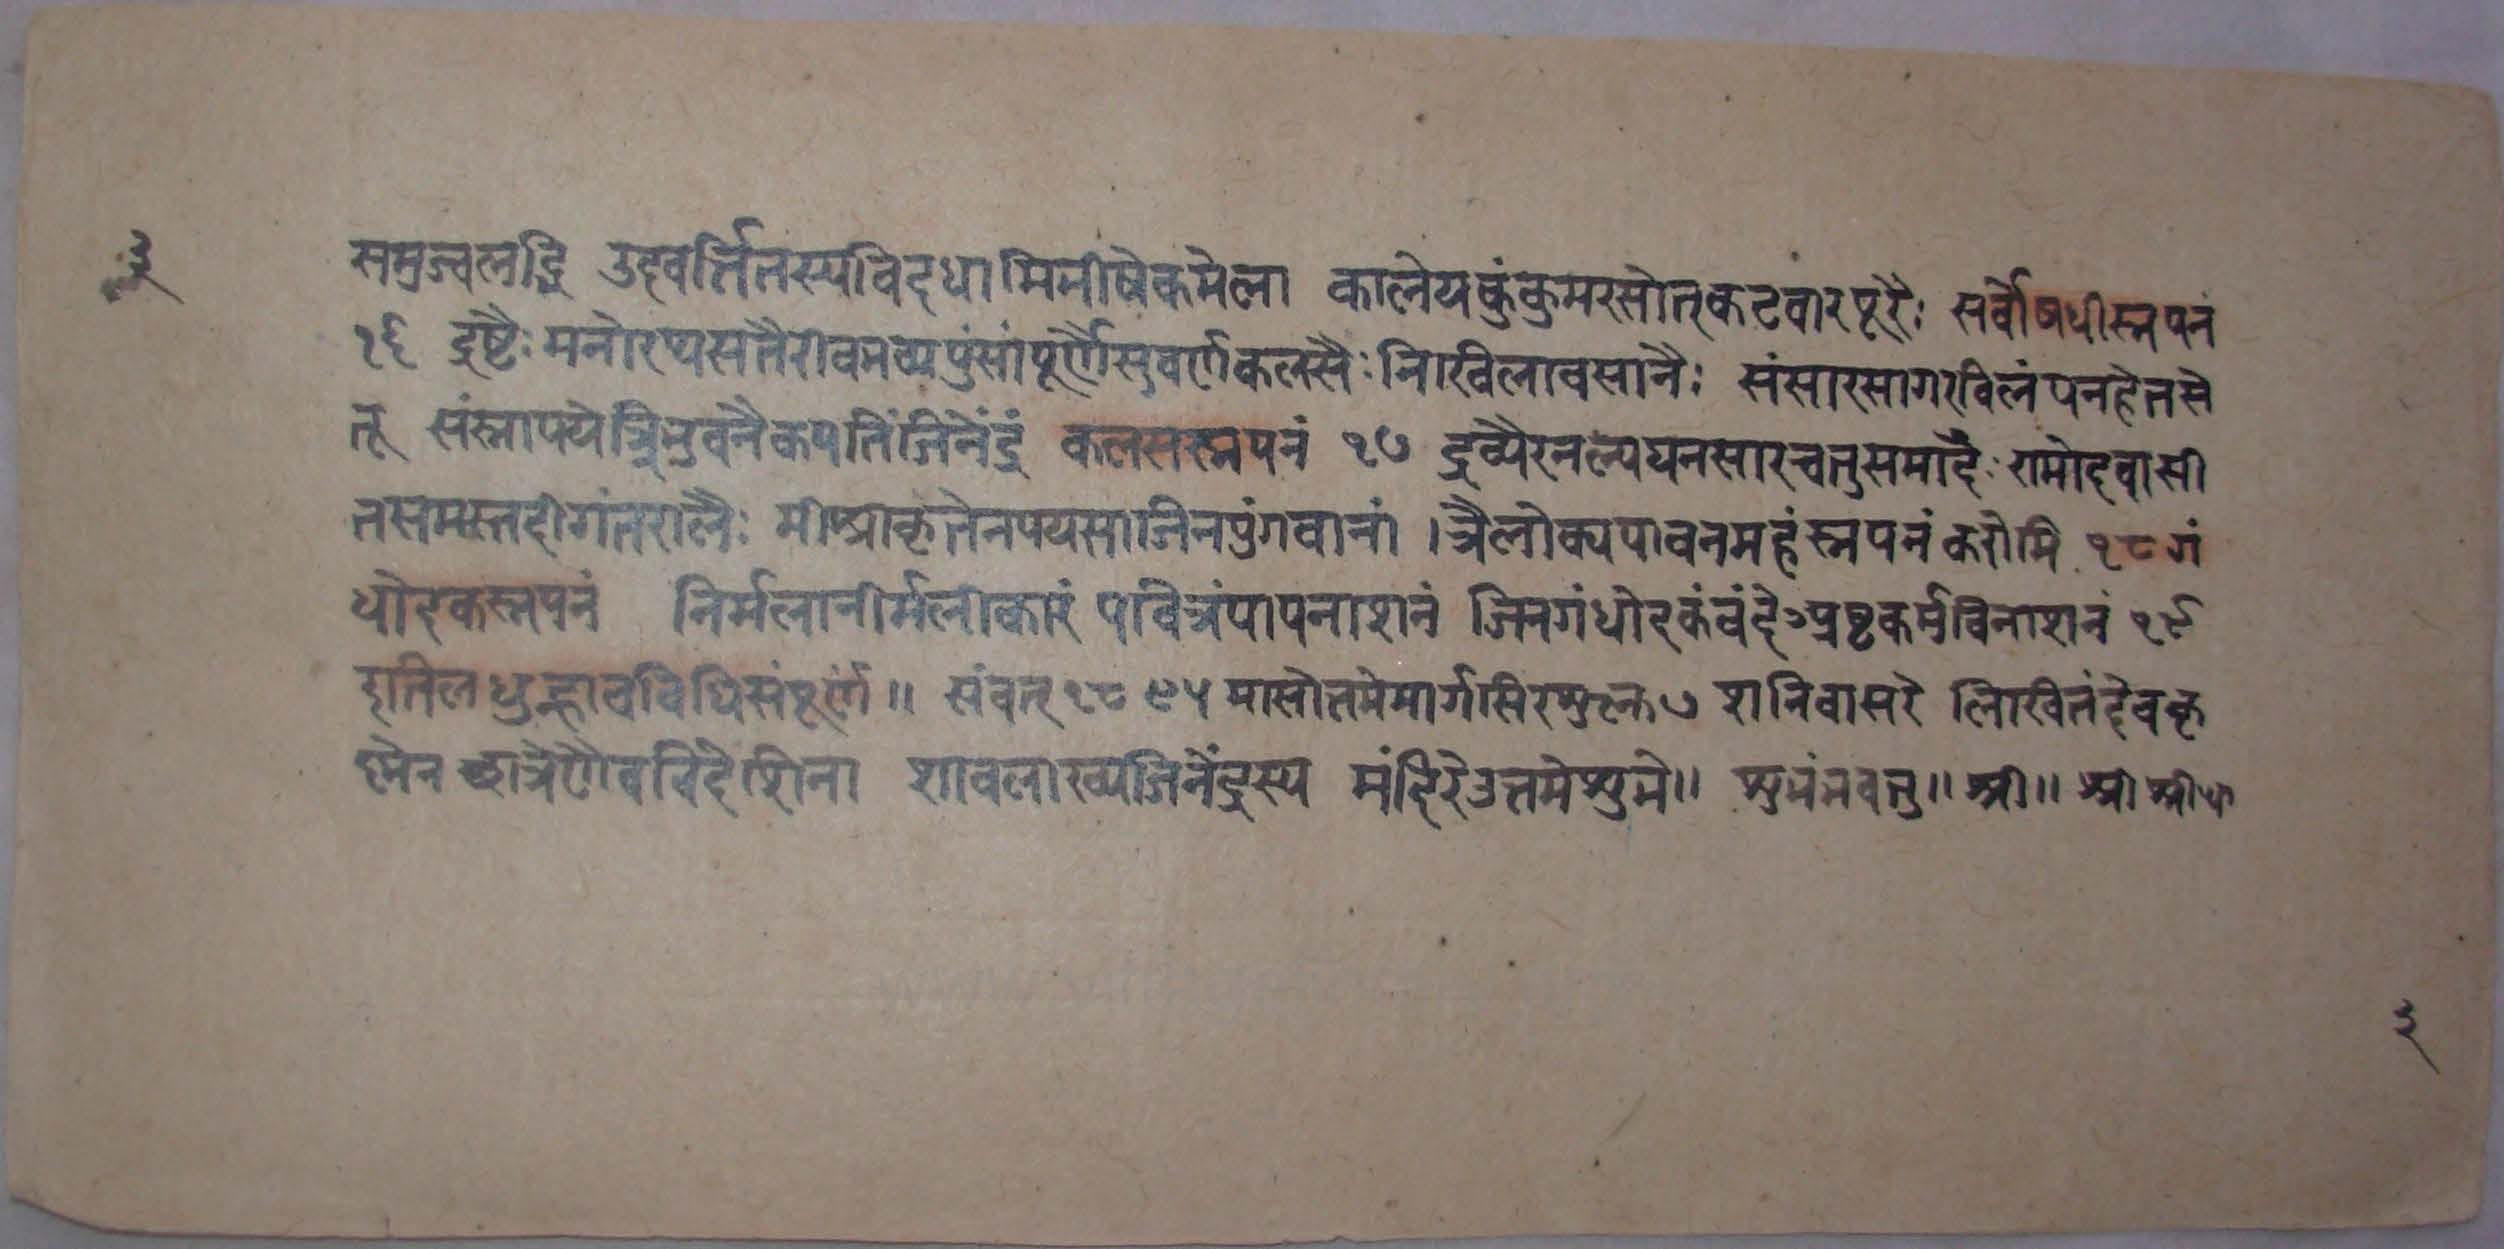 ३
समुज्वलद्भि उद्दवर्त्तितस्यविदधामिमीषेकमेला कालेयकुंकुमरसोत्कटवारपूरैः सर्वौषधीस्नपनं
१६ द्रष्टैः मनोरथसतैरीवभव्यपुंसां पूर्णैसुवर्णकलसैः निखिलावसानैः संसारसागरविलंघनहेतसे
तू संस्नापयेत्रिभुवनैकपतिंजिनेंद्रं कलसस्नपनं १७ द्रव्यैरनल्पघनसारचतुसमाद्यैः रामोदवासी
तसमस्तदीगंतरालैः मीश्रीकृतेनपयसाजिनपुंगवानां । त्रैलोक्यपावनमहंस्नपनं करोमि १८ गं
धोदकस्नपनं निर्मलानीर्मलीकारं पवित्रंपापनाशनं जिनगंधोदकंवंदेऽष्टकर्मविनाशनं १९
इतिलघुन्हावविधिसंपूर्णं ॥ संवत् १८९५ मासोत्तमेमार्गसिरशुक्ल७ शनिवासरे लिखितंदेवकृ
ष्णेन छात्रेणैवविदेशिना शावलाख्यजिनेंद्रस्य मंदिरेउत्तमेशुभे॥ शुभंभवतु॥ श्री॥ श्री श्री
३